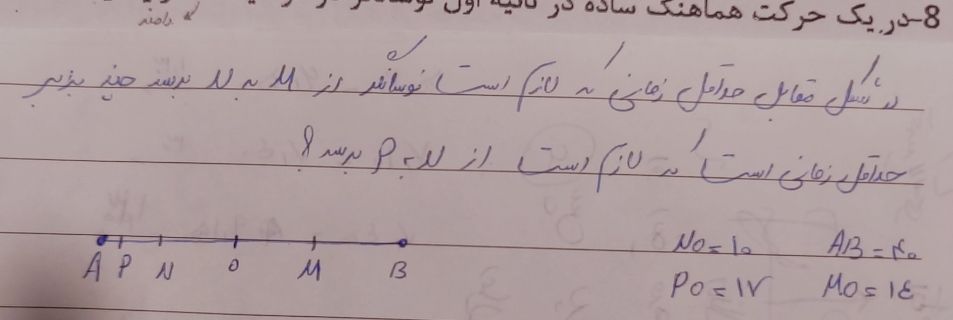 8-در یک حرکت هماهنگ ساده در ثانیه اول
دامنه
در شکل مقابل حداقل زمانی که لازم است نوسانگر از M به N برسد چند برابر
حداقل زمانی است که لازم است از N به P برسد؟
NO = ۱۰ AB = ۴۰
A P N O M B
PO = ۱۷ MO = ۱٤